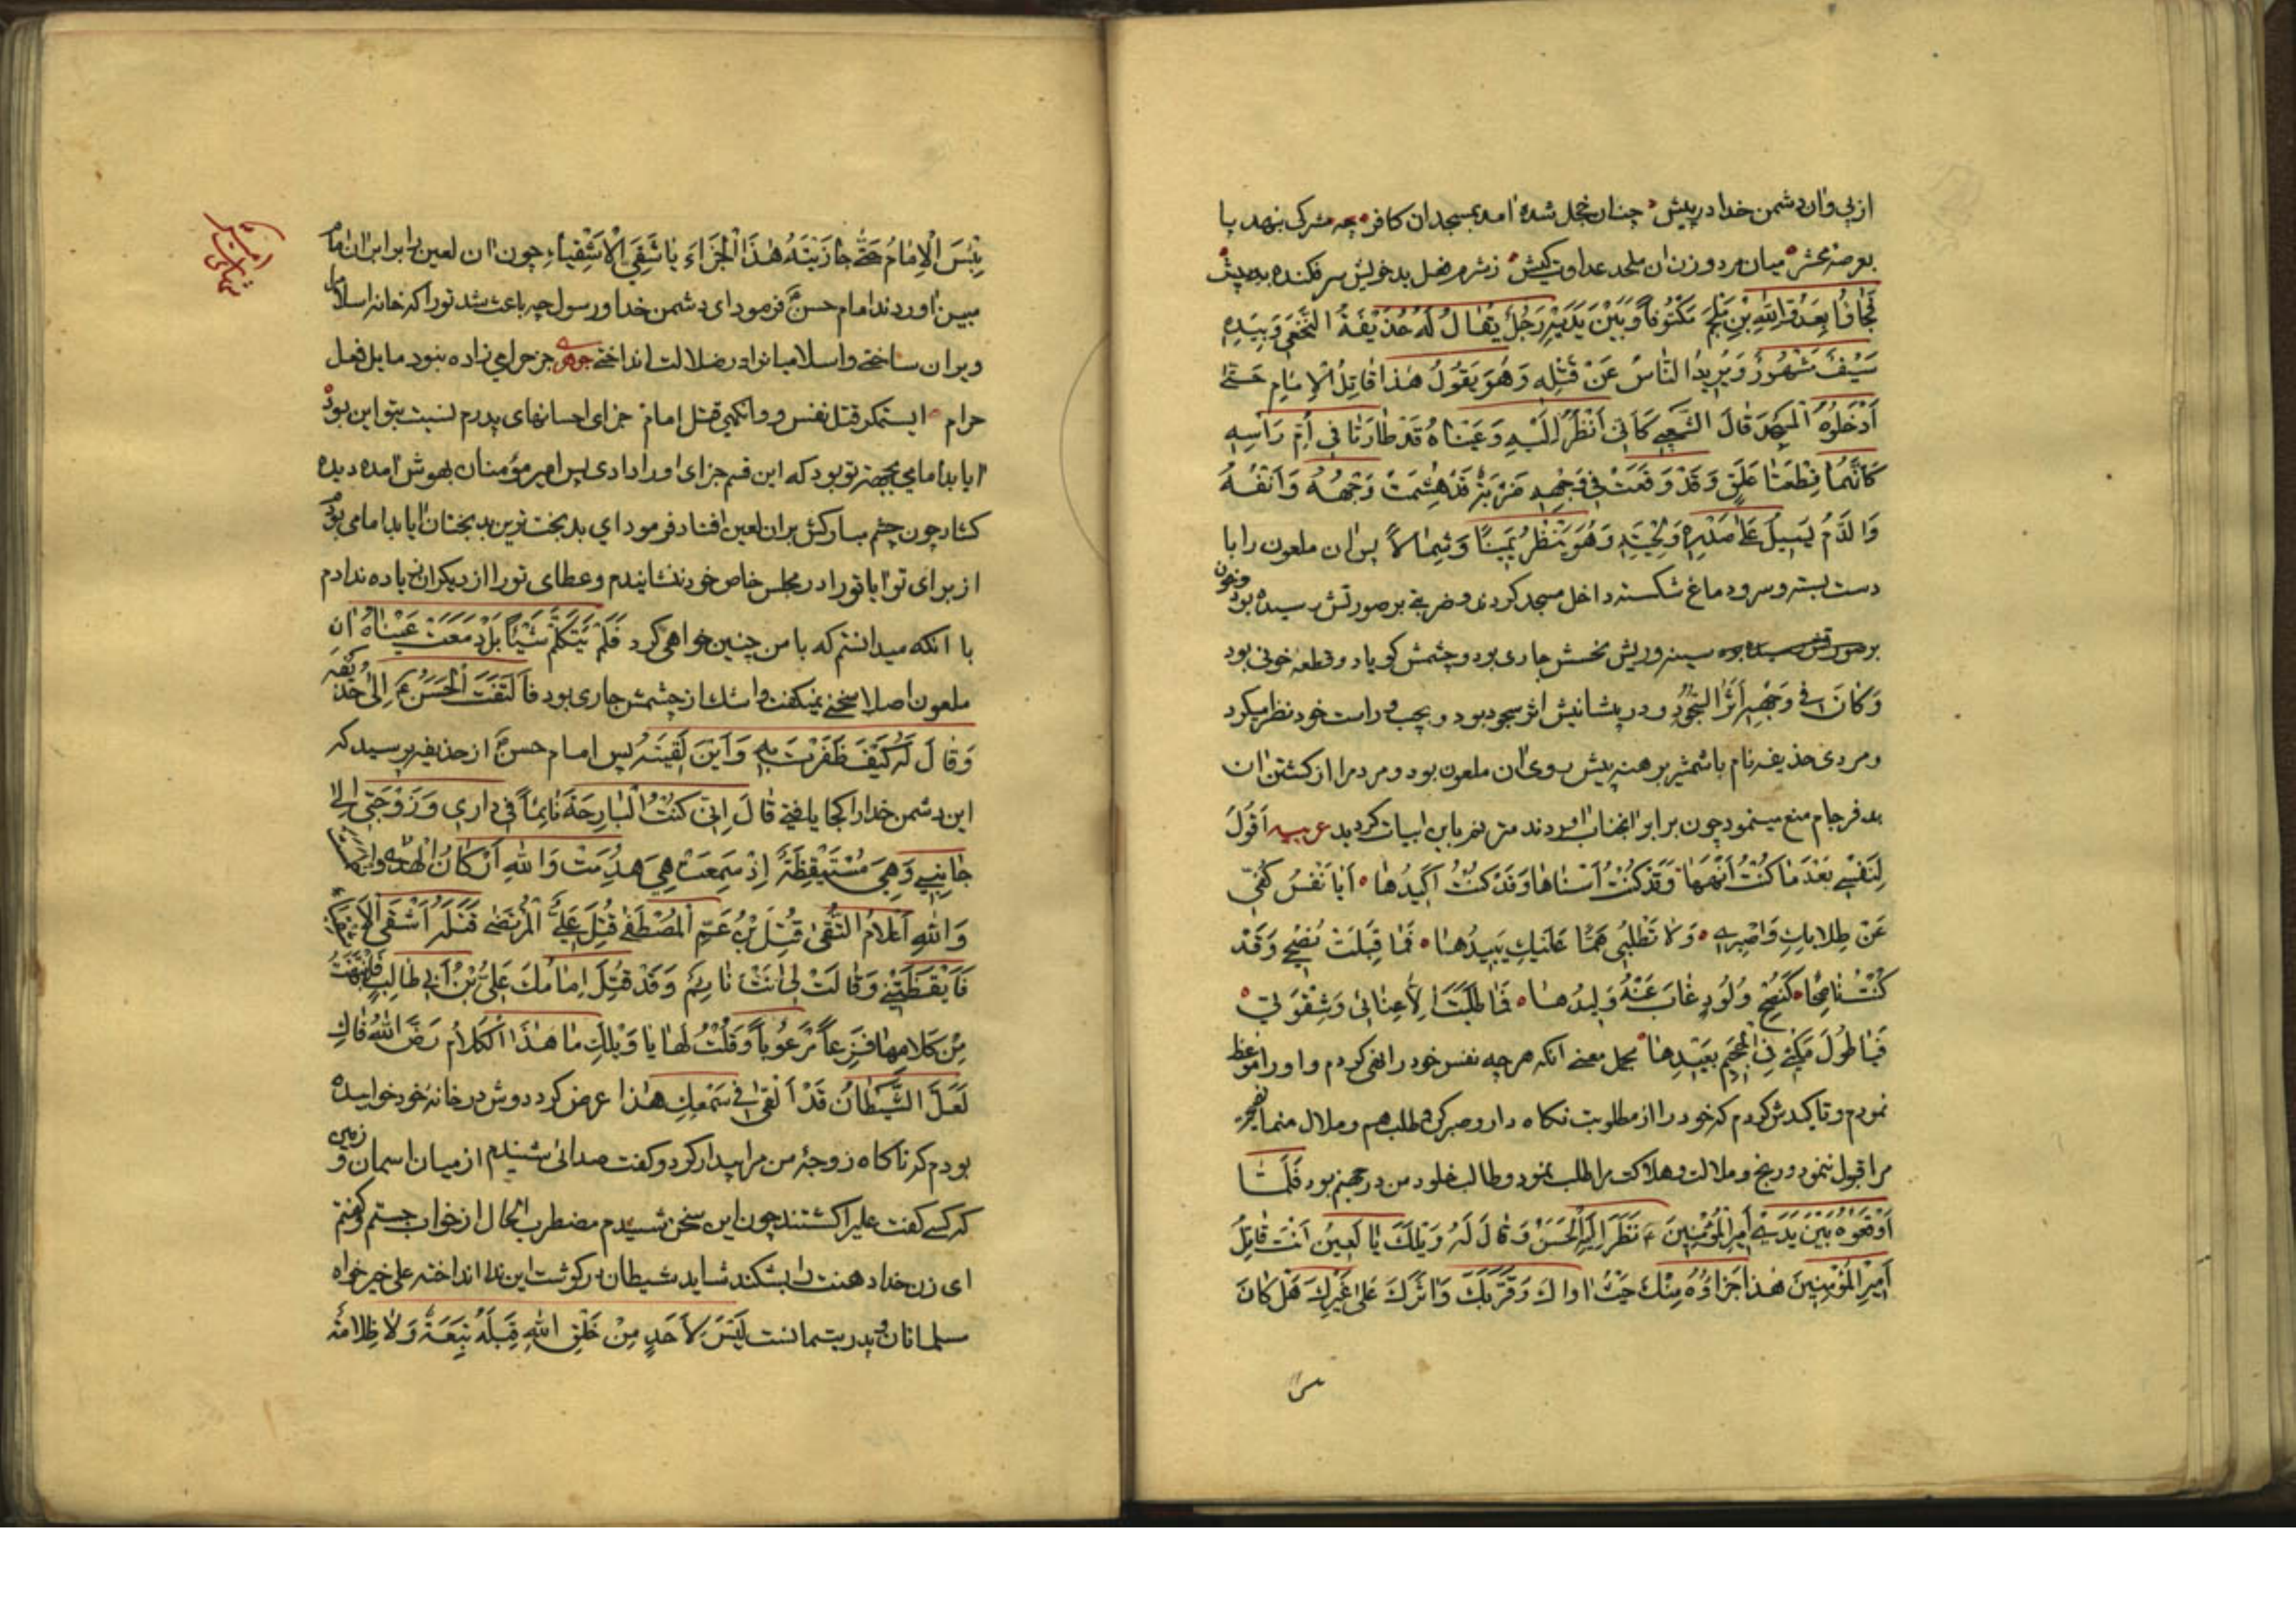 از پی و ان دشمن خدا در پیش چنان خجل شده امد بمسجد ان کافر چه مشرکی بنهد پا
بعرصهٔ محشر میان مرد و زن ان ملحد عداوت کیش ز شرم فعل بد خویش سر فکنده به پیش
فَجَاؤُا بِعَدُوِّ اللّهِ بْنِ مُلْجَمٍ مَكْتُوفًا وَ بَيْنَ يَدَيْهِ رَجُلٌ يُقَالُ لَهُ حُذَيْفَةُ النَّخَعِي وَ بِيَدِهِ
سَيْفٌ مَشْهُورٌ وَيُرِيدُ النَّاسُ عَنْ قَتْلِهِ وَهُوَ يَقُولُ هٰذَا قَاتِلُ الْإِمَامِ حَتّٰى
أَدْخَلُوهُ الْمَسْجِدَ قَالَ الشَّعْبِي كَأَنِّي أَنْظُرُ إِلَيْهِ وَعَيْنَاهُ قَدْ طَارَتَا فِي أُمِّ رَأْسِهِ
كَأَنَّهُمَا قِطْعَتَا عَلَقٍ وَقَدْ وَقَعَتْ فِي وَجْهِهِ ضَرْبَةٌ قَدْ هَشَمَتْ وَجْهَهُ وَأَنْفَهُ
وَالدَّمُ يَسِيلُ عَلىٰ صَدْرِهِ وَ لِحْيَتِهِ وَهُوَ يَنْظُرُ يَمِينًا وَ شِمَالًا پس ان ملعون را با
دست بسته و سر و دماغ شکسته داخل مسجد کردند و ضربتی بر صورتش رسیده بود و خون
بر سینه و ریش نحسش جاری بود و چشمش کویا دو قطعهٔ خونی بود
وَ كَانَ فِي وَجْهِهِ أَثَرُ السُّجُودِ و در پیشانیش اثر سجود بود و بچپ و راست خود نظر میکرد
و مردی حذیفه نام با شمشیر برهنه پیش روی ان ملعون بود و مردم را از کشتن ان
بد فرجام منع مینمود چون برابر انجناب اوردند مترنم باین ابیات کردید عربیه أَقُولُ
لِنَفْسِي بَعْدَ مَا كُنْتُ أَنْهٰهَا وَ قَدْ كُنْتُ أَسْنَاهَا وَ قَدْ كُنْتُ أَكِيدُهَا أَيَا نَفْسُ كُفِّي
عَنْ طِلَابِكِ وَاصْبِرِي وَ لَا تَطْلُبِي هَمًّا عَلَيْكِ يَبِيدُهَا فَمَا قَبِلَتْ نُصْحِي وَقَدْ
كُنْتُ نَاصِحًا كَنُصْحِ وَلُودٍ غَابَ عَنْهُ وَلِيدُهَا فَمَا طَلَبَتْ إِلَّا عِنَائِي وَ شِقْوَتِي
فَيَا طُولَ مَكْثِي فِي الْجَحِيمِ بَعِيدُهَا مجمل معنی انکه هر چه نفس خود را نهی کردم و او را موعظ
نمودم و تاکیدش کردم که خود را از مطلوبت نکاه دار و صبر کن و طلب هم و ملال منما
مرا قبول ننمود و رنج و ملالت و هلاکت مرا طلب نمود و طالب خلود من در جهنم بود فَلَمَّا
أَوْقَفُوهُ بَيْنَ يَدَيْ أَمِيرِ الْمُؤْمِنِينَ ع نَظَرَ إِلَيْهِ الْحَسَنُ وَ قَالَ لَهُ وَيْلَكَ يَا لَعِينُ أَنْتَ قَاتِلُ
أَمِيرِ الْمُؤْمِنِينَ هٰذَا جَزَاؤُهُ مِنْكَ حَيْثُ اواكَ وَ قَرَّبَكَ وَ اثَرَكَ عَلىٰ غَيْرِكَ هَلْ كَانَ
بِئْسَ الْإِمَامُ حَتّٰى جَازَيْتَهُ هٰذَا الْجَزَاءَ يَا شَقِيَّ الْأَشْقِيَاءِ چون ان لعین را برابر ان امام
مبین اوردند امام حسن ع فرمود ای دشمن خدا و رسول چه باعث شد تو را که خانه اسلام را
ویران ساختی و اسلامیان را در ضلالت انداختی جوهری جز حرامی زاده نبود مایل فعل
حرام ایستمکر قتل نفس و وانکهی قتل امام جزای احسانهای پدرم نسبت بتو این بود
ایا بد امامی بجهة تو بود که این قسم جزای او را دادی پس امیر مؤمنان بهوش امده دیده
کشاد چون چشم مبارکش بران لعین افتاد فرمود ای بدبخت ترین بدبختان ایا بد امامی بودم
از برای تو ایا تو را در مجلس خاص خود ننشانیدم و عطای تو را از دیکران زیاده ندادم
با انکه میدانستم که با من چنین خواهی کرد فَلَمْ يَتَكَلَّمْ شَيْئًا بَلْ دَمَعَتْ عَيْنَاهُ ان
ملعون اصلا سخنی نمیکفت و اشک از چشمش جاری بود فَالْتَفَتَ الْحَسَنُ ع إِلىٰ حُذَيْفَه
وَ قَالَ لَهُ كَيْفَ ظَفَرْتَ بِهِ وَ أَيْنَ لَقِيتَهُ پس امام حسن ع از حذیفه پرسید که
این دشمن خدا را کجا یافتی قَالَ إِنّي كُنْتُ الْبَارِحَةَ نَائِمًا فِي دَارِي وَ زَوْجَتِي إِلىٰ
جَانِبِي وَهِيَ مُسْتَيْقِظَةٌ إِذْ سَمِعَتْ هِيَ هدِّمَتْ وَاللهِ أَرْكَانُ الْهُدٰى
وَ اللّهِ أَعْلَامُ التُّقٰى قُتِلَ بْنُ عَمِّ الْمُصْطَفٰى قُتِلَ عَلِيٌّ الْمُرْتَضٰى قَتَلَهُ أَشْقَى
فَأَيْقَظَتْنِي وَ قَالَتْ لِي أَنْتَ نَائِمٌ وَ قَدْ قُتِلَ إِمَامُكَ عَلِيُّ بْنُ أَبِي طَالِبٍ فَانْتَبَهْتُ
مِنْ كَلَامِهَا فَزِعًا مَرْعُوبًا وَ قُلْتُ لَهَا يَا وَيْلَكِ مَا هٰذَا الْكَلَامُ رَضَّ اللّهُ فَاكِ
لَعَلَّ الشَّيْطَانُ قَدْ أَلْقىٰ فِي سَمْعِكِ هٰذَا عرض کرد دوش در خانه خود خوابیده
بودم که ناکاه زوجهٔ من مرا بیدار کرد و کفت صدائی شنیدم از میان اسمان و زمین
که کسی کفت علی را کشتند چون این سخن شنیدم مضطرب الحال از خواب جستم و کفتم
ای زن خدا دهنت را بشکند شاید شیطان در کوشت این ندا انداخته علی خیر خواه
مسلمانان و پدر یتیمانست لَيْسَ لِأَحَدٍ مِنْ خَلْقِ اللّهِ قِبَلَهُ تَبِعَةٌ وَ لَا ظِلَامَةٌ